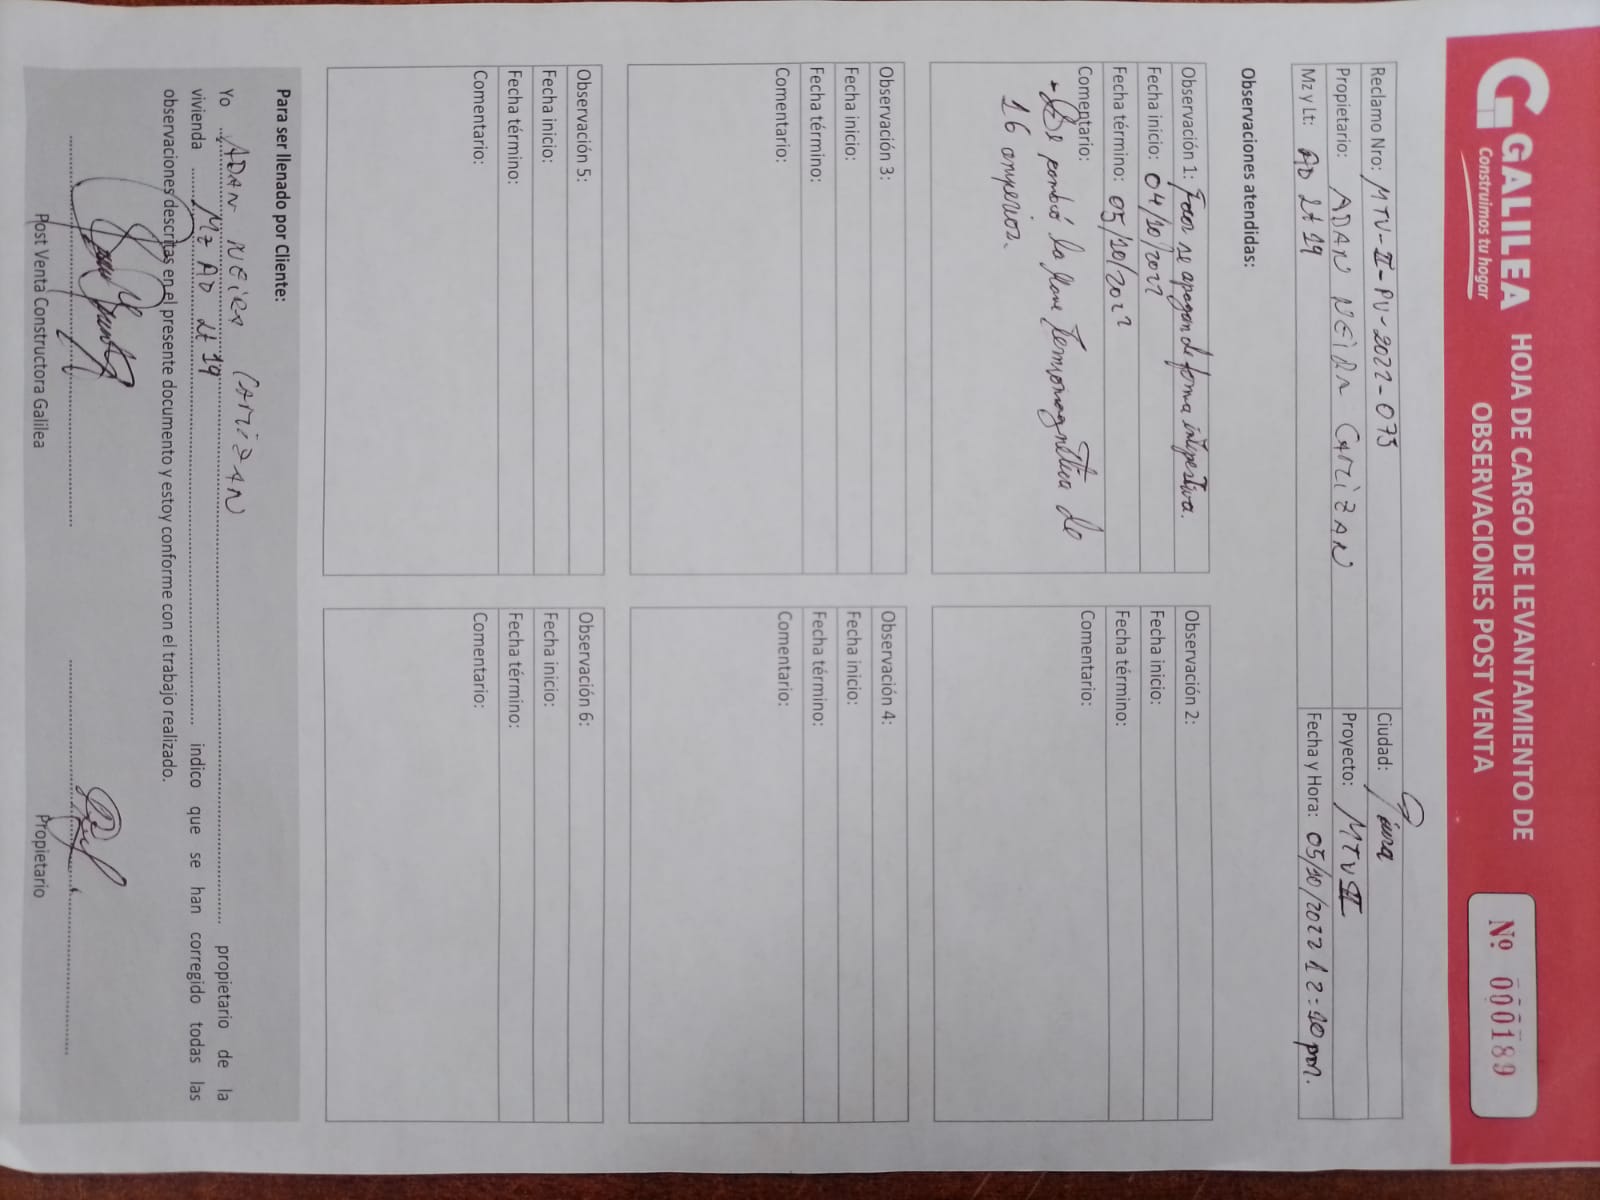 GALILEA
Construimos tu hogar
HOJA DE CARGO DE LEVANTAMIENTO DE
OBSERVACIONES POST VENTA
Nº 000189
Reclamo Nro: MTV-II-PV-2022-073
Ciudad: Piura
Propietario: ADAN NEIRA CARTIZAN
Proyecto: MTV II
Mz y Lt: AD Lt 19
Fecha y Hora: 05/10/2022 12:10 pm.
Observaciones atendidas:
Observación 1: Focos se apagan de forma intepestiva.
Fecha inicio: 04/10/2022
Fecha término: 05/10/2022
Comentario:
- Se cambió la llave termomagnética de
16 amperios.
Observación 2:
Fecha inicio:
Fecha término:
Comentario:
Observación 3:
Fecha inicio:
Fecha término:
Comentario:
Observación 4:
Fecha inicio:
Fecha término:
Comentario:
Observación 5:
Fecha inicio:
Fecha término:
Comentario:
Observación 6:
Fecha inicio:
Fecha término:
Comentario:
Para ser llenado por Cliente:
Yo ADAN NEIRA CARTIZAN propietario de la
vivienda Mz AD Lt 19 indico que se han corregido todas las
observaciones descritas en el presente documento y estoy conforme con el trabajo realizado.
Post Venta Constructora Galilea
Propietario